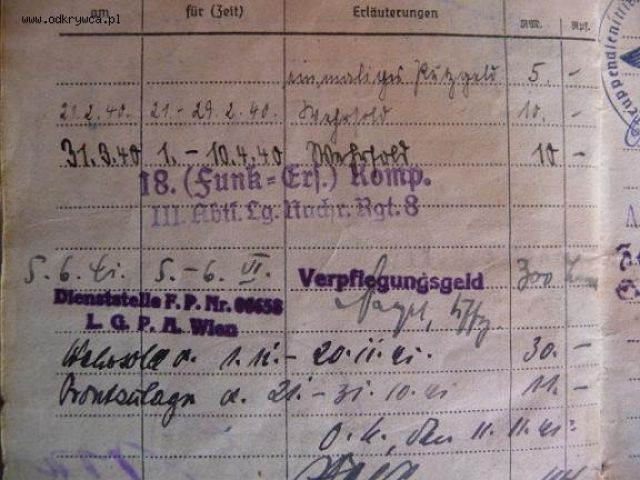 www.odkrywca.pl
am für (Zeit) Erläuterungen RM. Rpf.
einmaliges Putzgeld 5. -
21.2.40. 21.-29.2.40. Wehrsold 10. -
31.3.40 1.-10.4.40 Wehrsold 10 -
18. (Funk=Ers.) Komp.
III. Abtl. Lg. Nachr. Rgt. 8
5.6.41. 5.-6. VI. Verpflegungsgeld
Dienststelle F.P. Nr. 00658
L. G. P. A. Wien
Wehrsold v. 1.11.-20.11.41. 30.-
Frontzulage v. 21.-31.10.41 11.-
O.U., den 11.11.41.